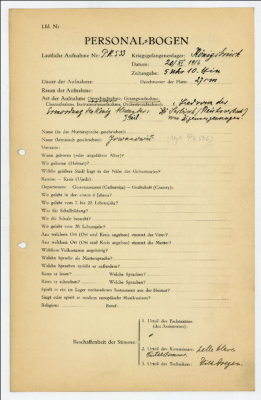 Lfd. Nr.
PERSONAL-BOGEN
Lautliche Aufnahme Nr.: PK 533
Kriegsgefangenenlager: Königsbrück
Datum: 1916
Zeitangabe: 5 Uhr 10 Min
Dauer der Aufnahme:
Durchmesser der Platte: 27 cm
Raum der Aufnahme:
Art der Aufnahme (Sprechaufnahme, Gesangsaufnahme,
Choraufnahme, Instrumentenaufnahme, Orchesteraufnahme):
Ermordung
Name (in der Muttersprache geschrieben):
Name (lateinisch geschrieben):
Vorname:
Wann geboren (oder ungefähres Alter)?
Wo geboren (Heimat)?
Welche größere Stadt liegt in der Nähe des Geburtsortes?
Kanton – Kreis (Ujedz):
Departement – Gouvernement (Gubernija) – Grafschaft (County):
Wo gelebt in den ersten 6 Jahren?
Wo gelebt vom 7. bis 20. Lebensjahr?
Was für Schulbildung?
Wo die Schule besucht?
Wo gelebt vom 20. Lebensjahr?
Aus welchem Ort (Ort und Kreis angeben) stammt der Vater?
Aus welchem Ort (Ort und Kreis angeben) stammt die Mutter?
Welchem Volksstamm angehörig?
Welche Sprache als Muttersprache?
Welche Sprachen spricht er außerdem?
Kann er lesen? Welche Sprachen?
Kann er schreiben? Welche Sprachen?
Spielt er ein im Lager vorhandenes Instrument aus der Heimat?
Singt oder spielt er modern europäische Musikweisen?
Religion: Beruf:
1. Urteil des Fachmannes
(des Assistenten):
Beschaffenheit der Stimme:
2. Urteil des Kommissars: